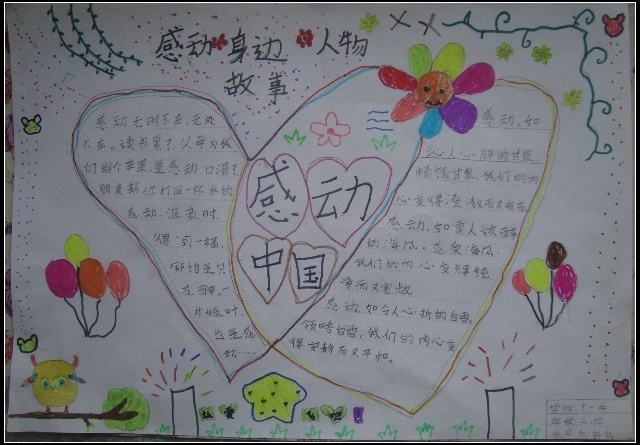 感动身边人物
故事
感动无时不在,无处
不在。读书累了,父母为我
们削个苹果是感动,口渴了
朋友帮你打回一杯水的
感动;沮丧时,
得到一福,
哪怕是只
花瓣,一
片绿叶,
也是感
动……
感动
中国
感动,如
沁人心
我们的内
心变得澄澈而又明亮
感动,如
的海风。感受海风,
我们的内心变得纯
净而又宽敞
感动,如令人心折的白雪。
领略白雪,我们的内心变
得安静而又平和。
学校:十一中
班级:二、四